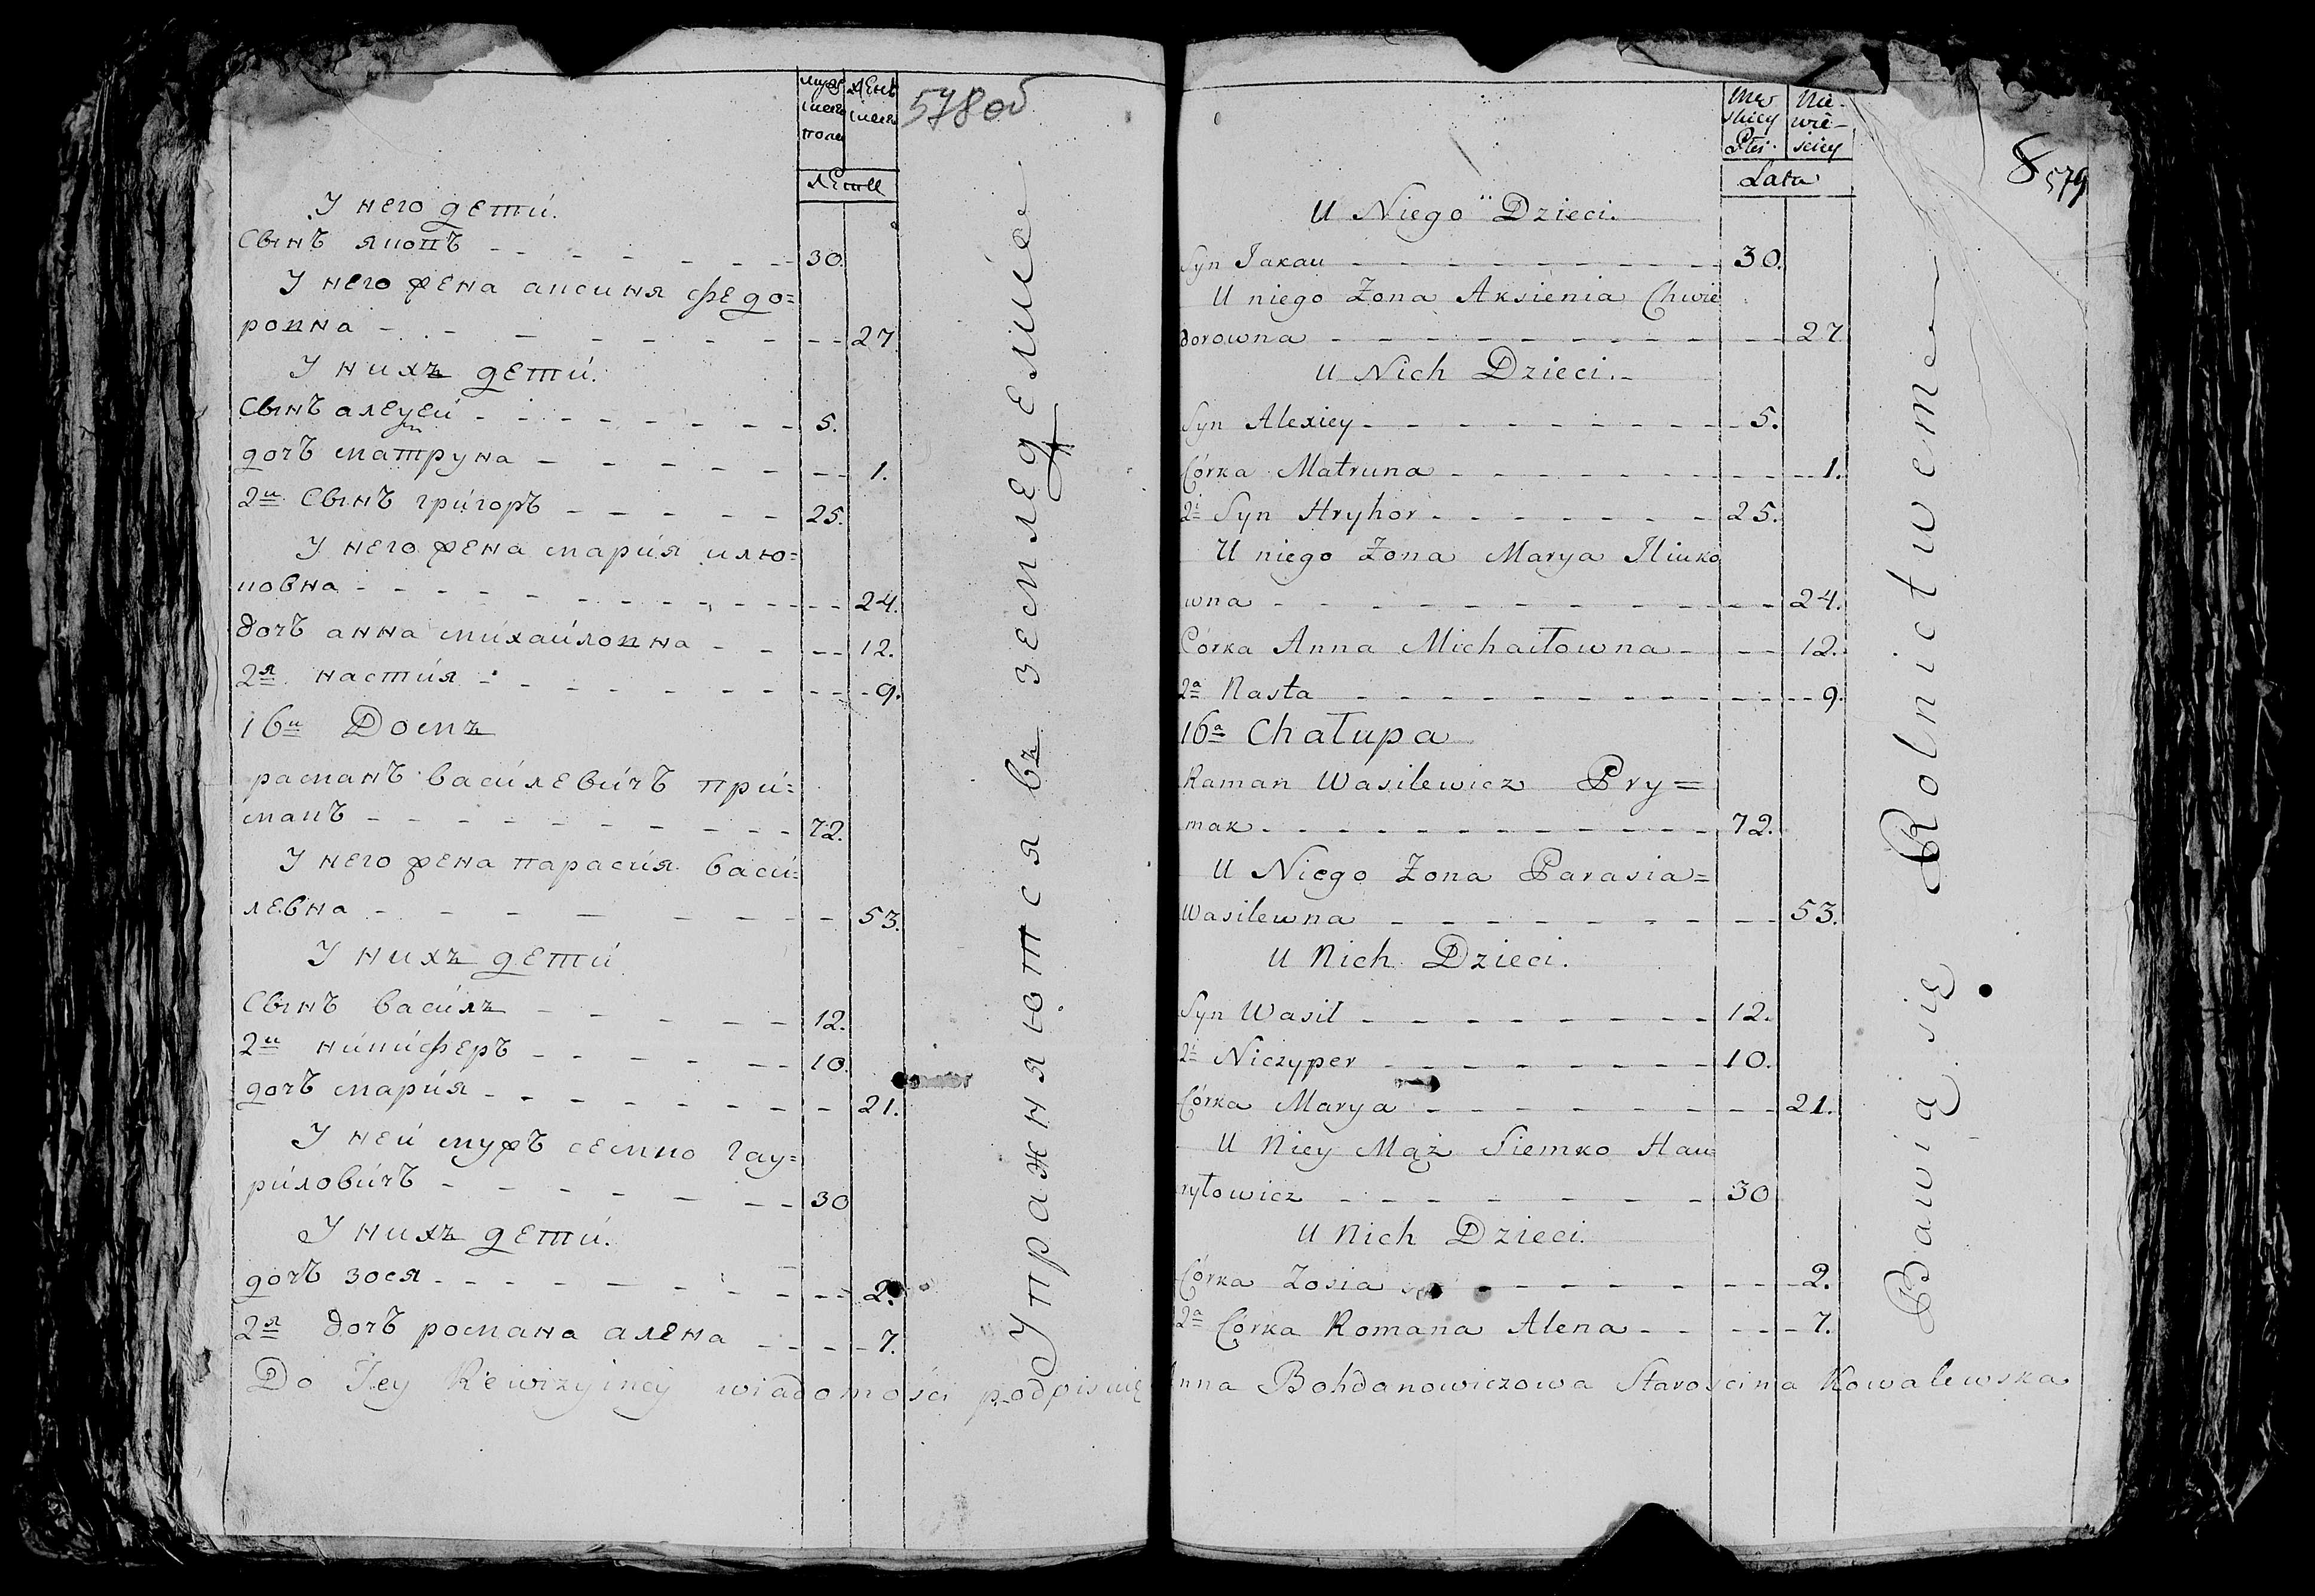 578 об
мужескаго пола
женскаго
лета
У него дети.
Сынъ яковъ 30.
У него жена аксиня федо=
ровна 27
У нихъ дети.
Сынъ алеѯей 5.
дочь матруна 1.
2й Сынъ григоръ 25.
У него жена мария илю=
ковна 24.
дочъ анна михайловна 12.
2я настия 9.
16й Домъ
раманъ василевичъ при=
макъ 72.
У него жена парасия васи=
левна 53.
У нихъ дети
Сынъ василъ 12.
2й никиферъ 10.
дочъ мария 21.
У ней мужъ семко гау=
риловичъ 30
У нихъ дети.
дочъ зося 2.
2я дочъ романа алена 7.
Упражняются въ земледелие
8
579
Męskiey Płci
Niewieściey
Lata
U Niego Dzieci.
Syn Jakau 30.
U niego Zona Aksienia Chwie
dorowna 27
U Nich Dzieci.
Syn Alexiey 5.
Córka Matruna 1.
2i Syn Hryhor 25.
U niego Zona Marya Iliuko
wna 24.
Córka Anna Michaiłowna 12.
2a Nasta 9.
16a Chałupa
Raman Wasilewicz Pry=
mak 72.
U Niego Zona Parasia=
Wasilewna 53.
U Nich Dzieci.
Syn Wasil 12.
2i Niczyper 10.
Córka Marya 21.
U Niey Mąż Siemko Hau=
ryłowicz 30
U Nich Dzieci.
Córka Zosia 2.
2a Córka Romana Alena 7.
Bawią się Rolnictwem
Do Tey Rewizyiney wiadomości podpisuię Anna Bohdanowiczowa Starościna Kowalewska